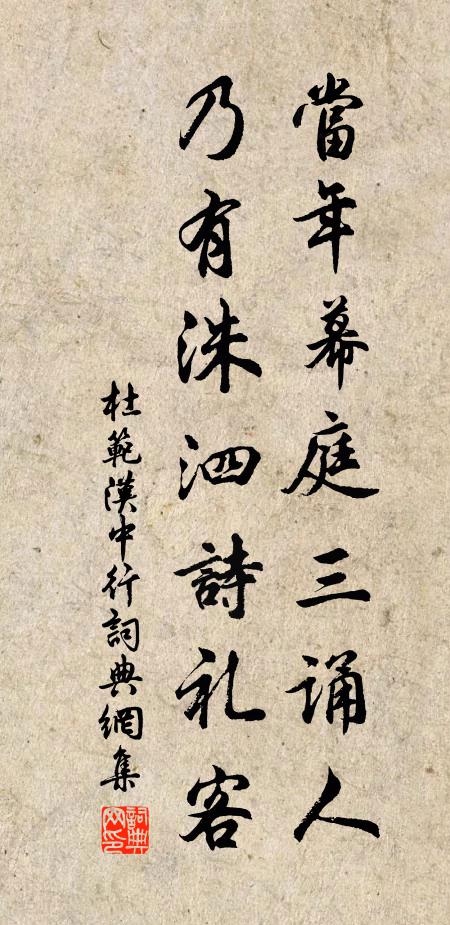 當年幕庭三誦人
乃有洙泗詩礼客
杜範漢中行詞典網集
詞典网印